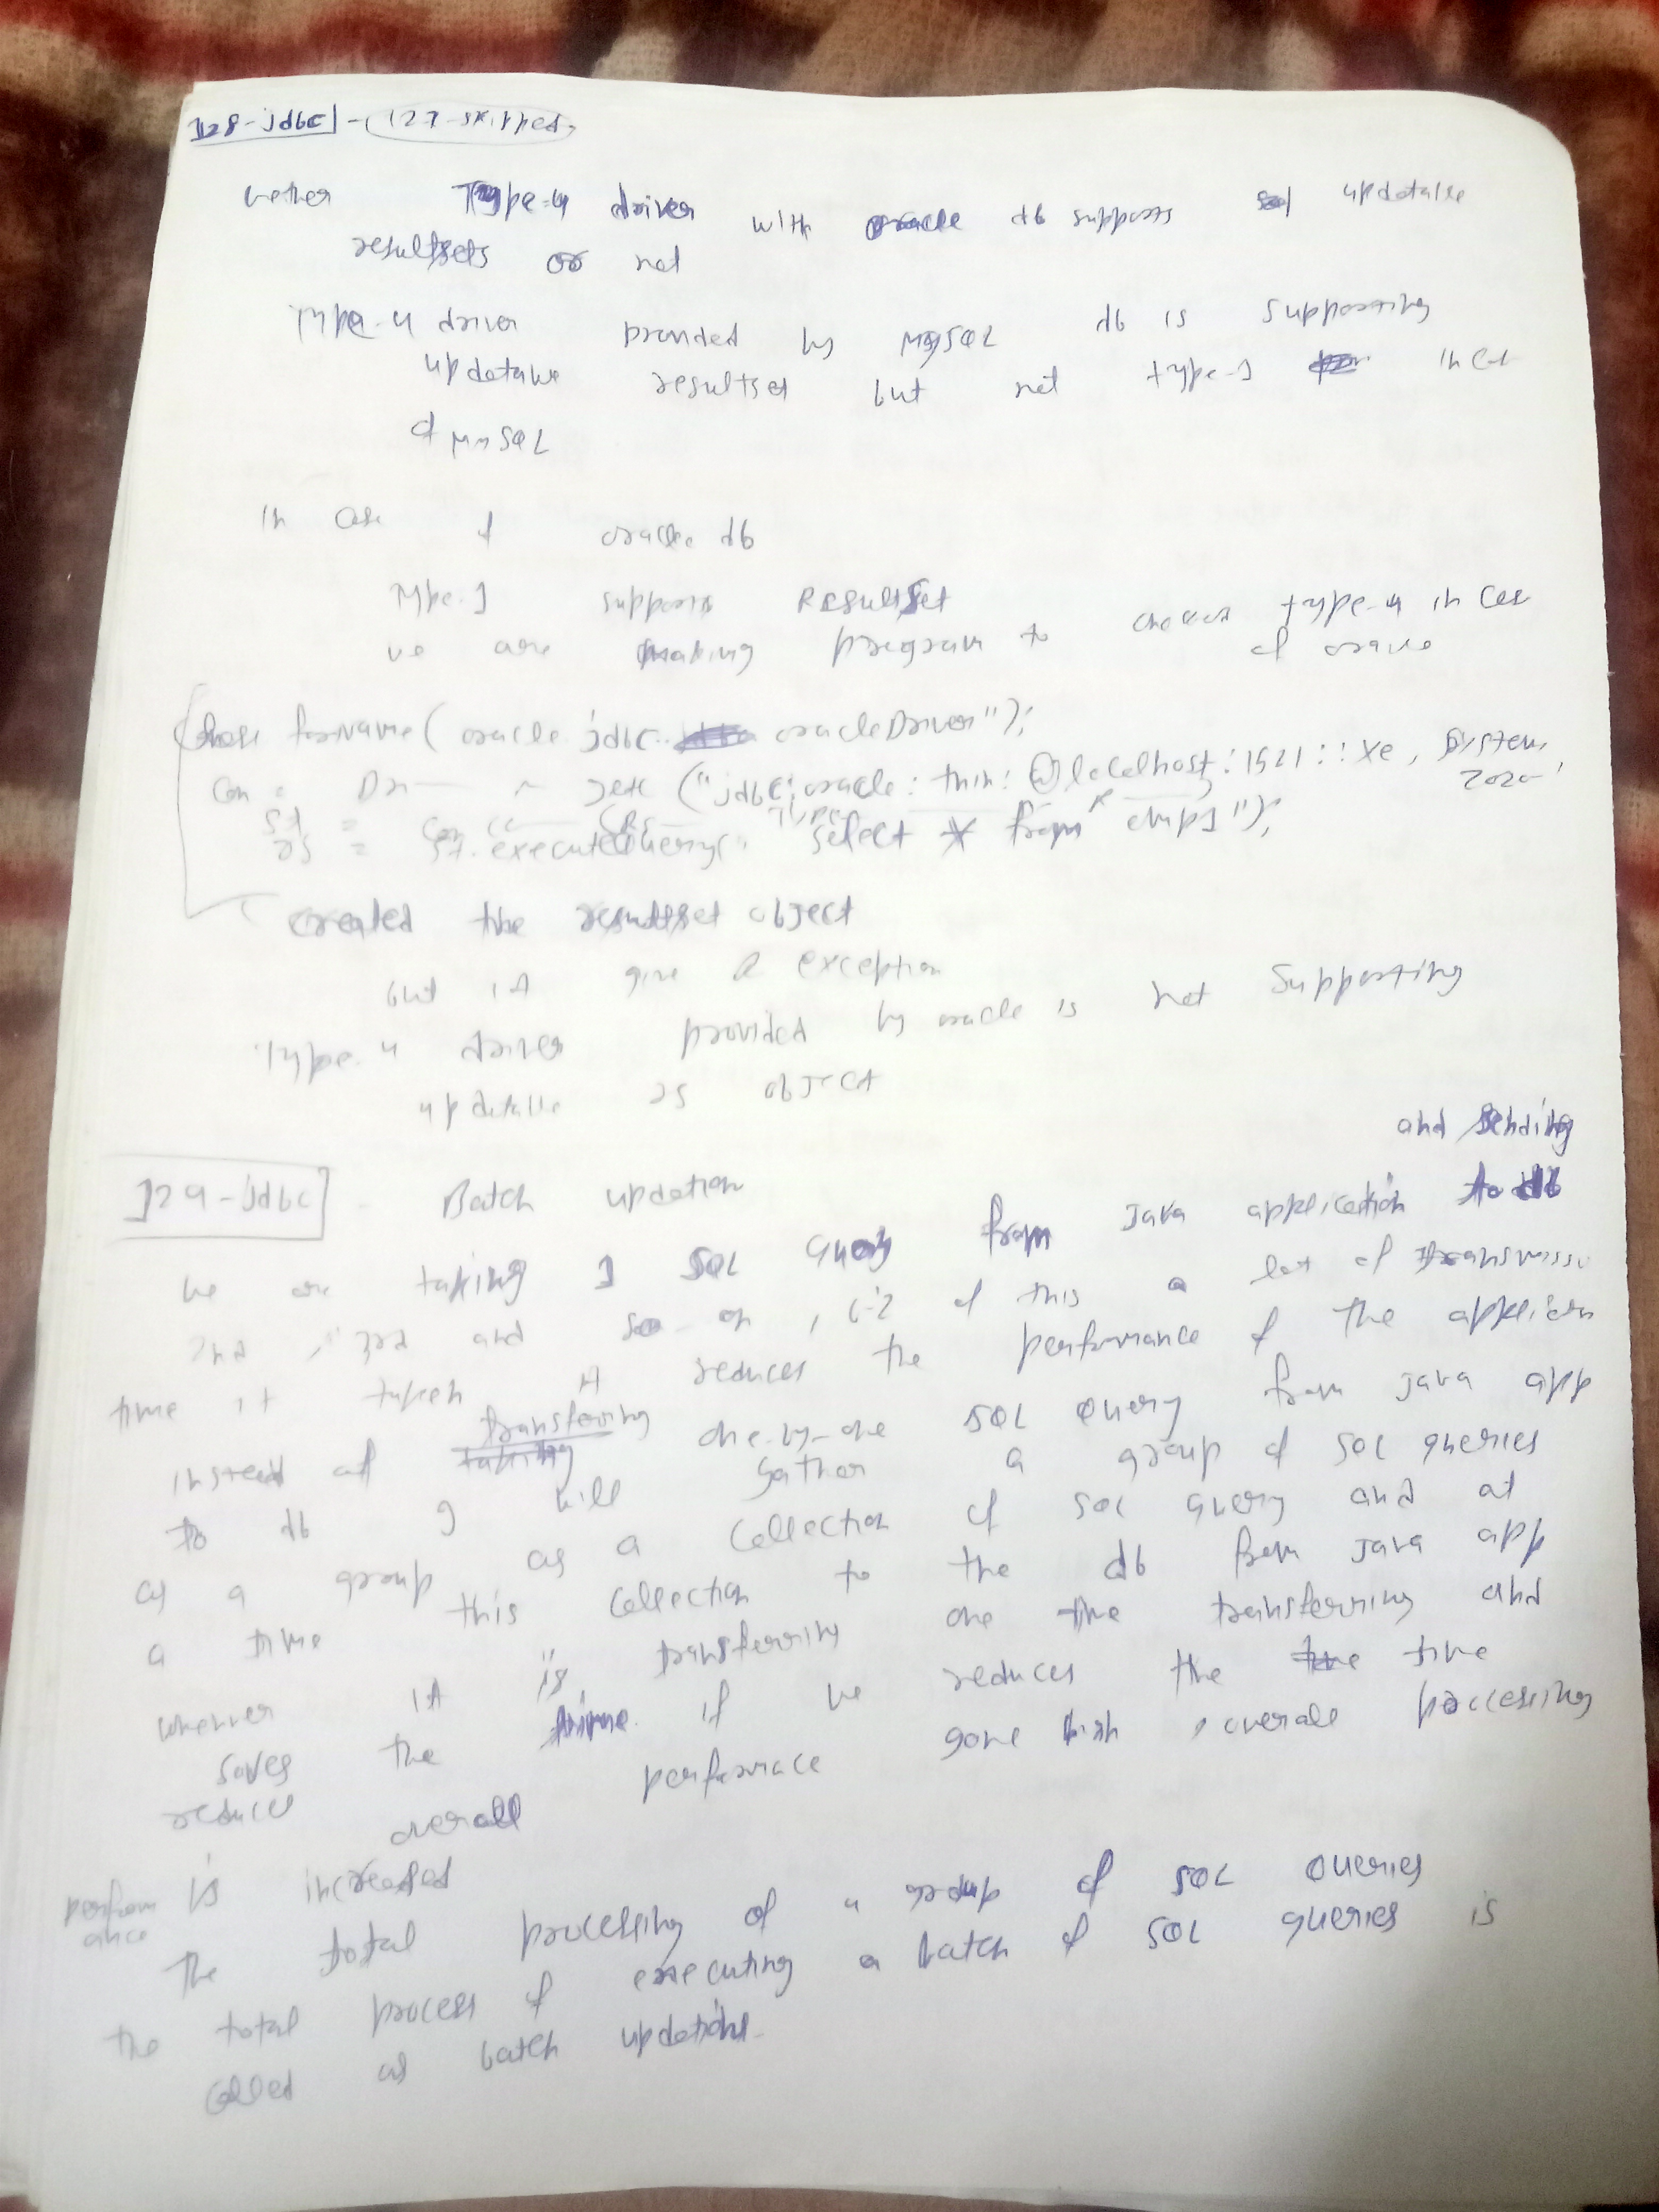 128-jdbc - 127-skipped
wether Type-4 driver with oracle db supports updatable
resultsets or not
Type-4 driver provided by MySQL db is supporting
updatable resultset but not type-1 in case
of MySQL
in case of oracle db
Type-1 supports Resultset
we are making program to check type-4 in case
of oracle
forName( oracle.jdbc. oracleDriver");
con = Dr ("jdbc:oracle:thin:@localhost:1521::xe, system,
st = con
rs = st.executeQuery(" select * from emp1");
created the resultset object
but it give a exception
Type-4 driver provided by oracle is not supporting
updatable rs object
and sending
129-jdbc - Batch updation
we are taking 1 SQL query from java application to db
2nd, 3rd and so on, of this a lot of
time it taken it reduces the performance of the
instead of transferring one-by-one SQL query from java app
to db I will gather a group of SQL queries
as a group as a collection of SQL query and at
a time this collection to the db from java app
whenever it is transferring one time transferring and
saves the time. if we reduces the time
reduces overall performace gone high, overall processing
performance is increased
The total processing of a group of SQL queries
the total process of executing a batch of SQL queries is
called as batch updations.